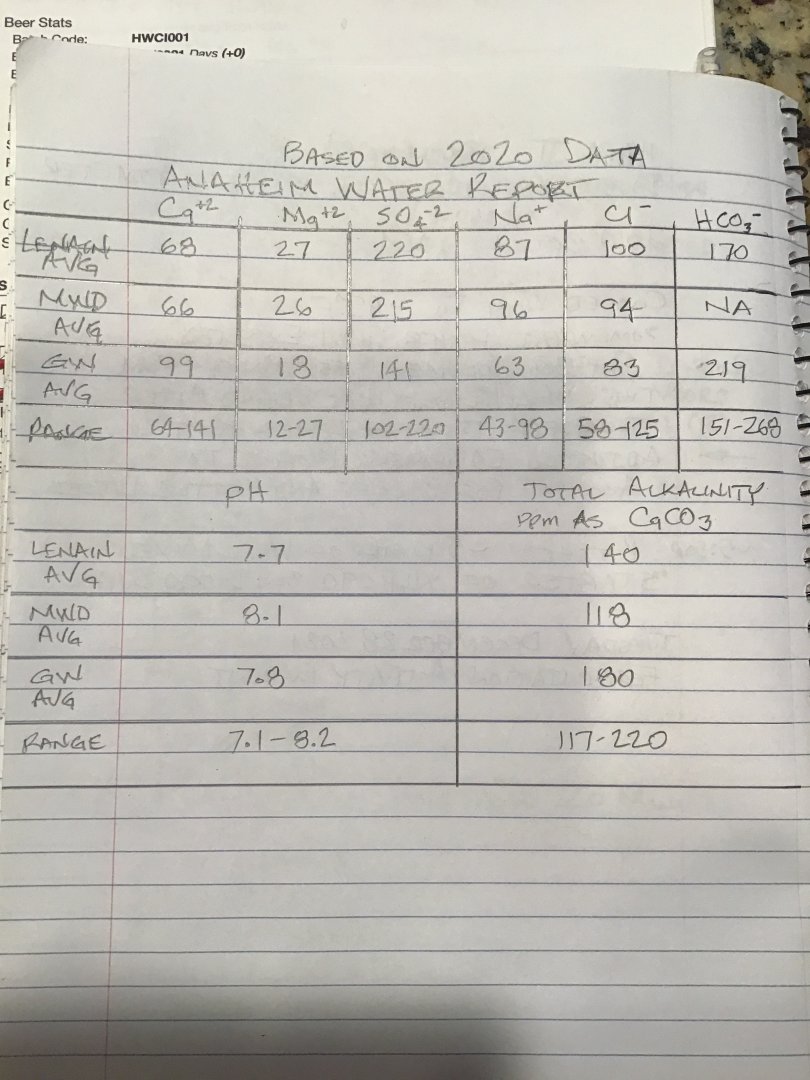 Beer Stats
HWCI001
Days (+0)
BASED ON 2020 DATA
ANAHEIM WATER REPORT
Ca+2 Mg+2 SO4-2 Na+ Cl- HCO3-
LENAIN AVG 68 27 220 87 100 170
MWD AVG 66 26 215 96 94 NA
GW AVG 99 18 141 63 83 219
RANGE 64-141 12-27 102-220 43-98 58-125 151-268
pH TOTAL ALKALINITY
ppm AS CaCO3
LENAIN AVG 7.7 140
MWD AVG 8.1 118
GW AVG 7.8 180
RANGE 7.1-8.2 117-220